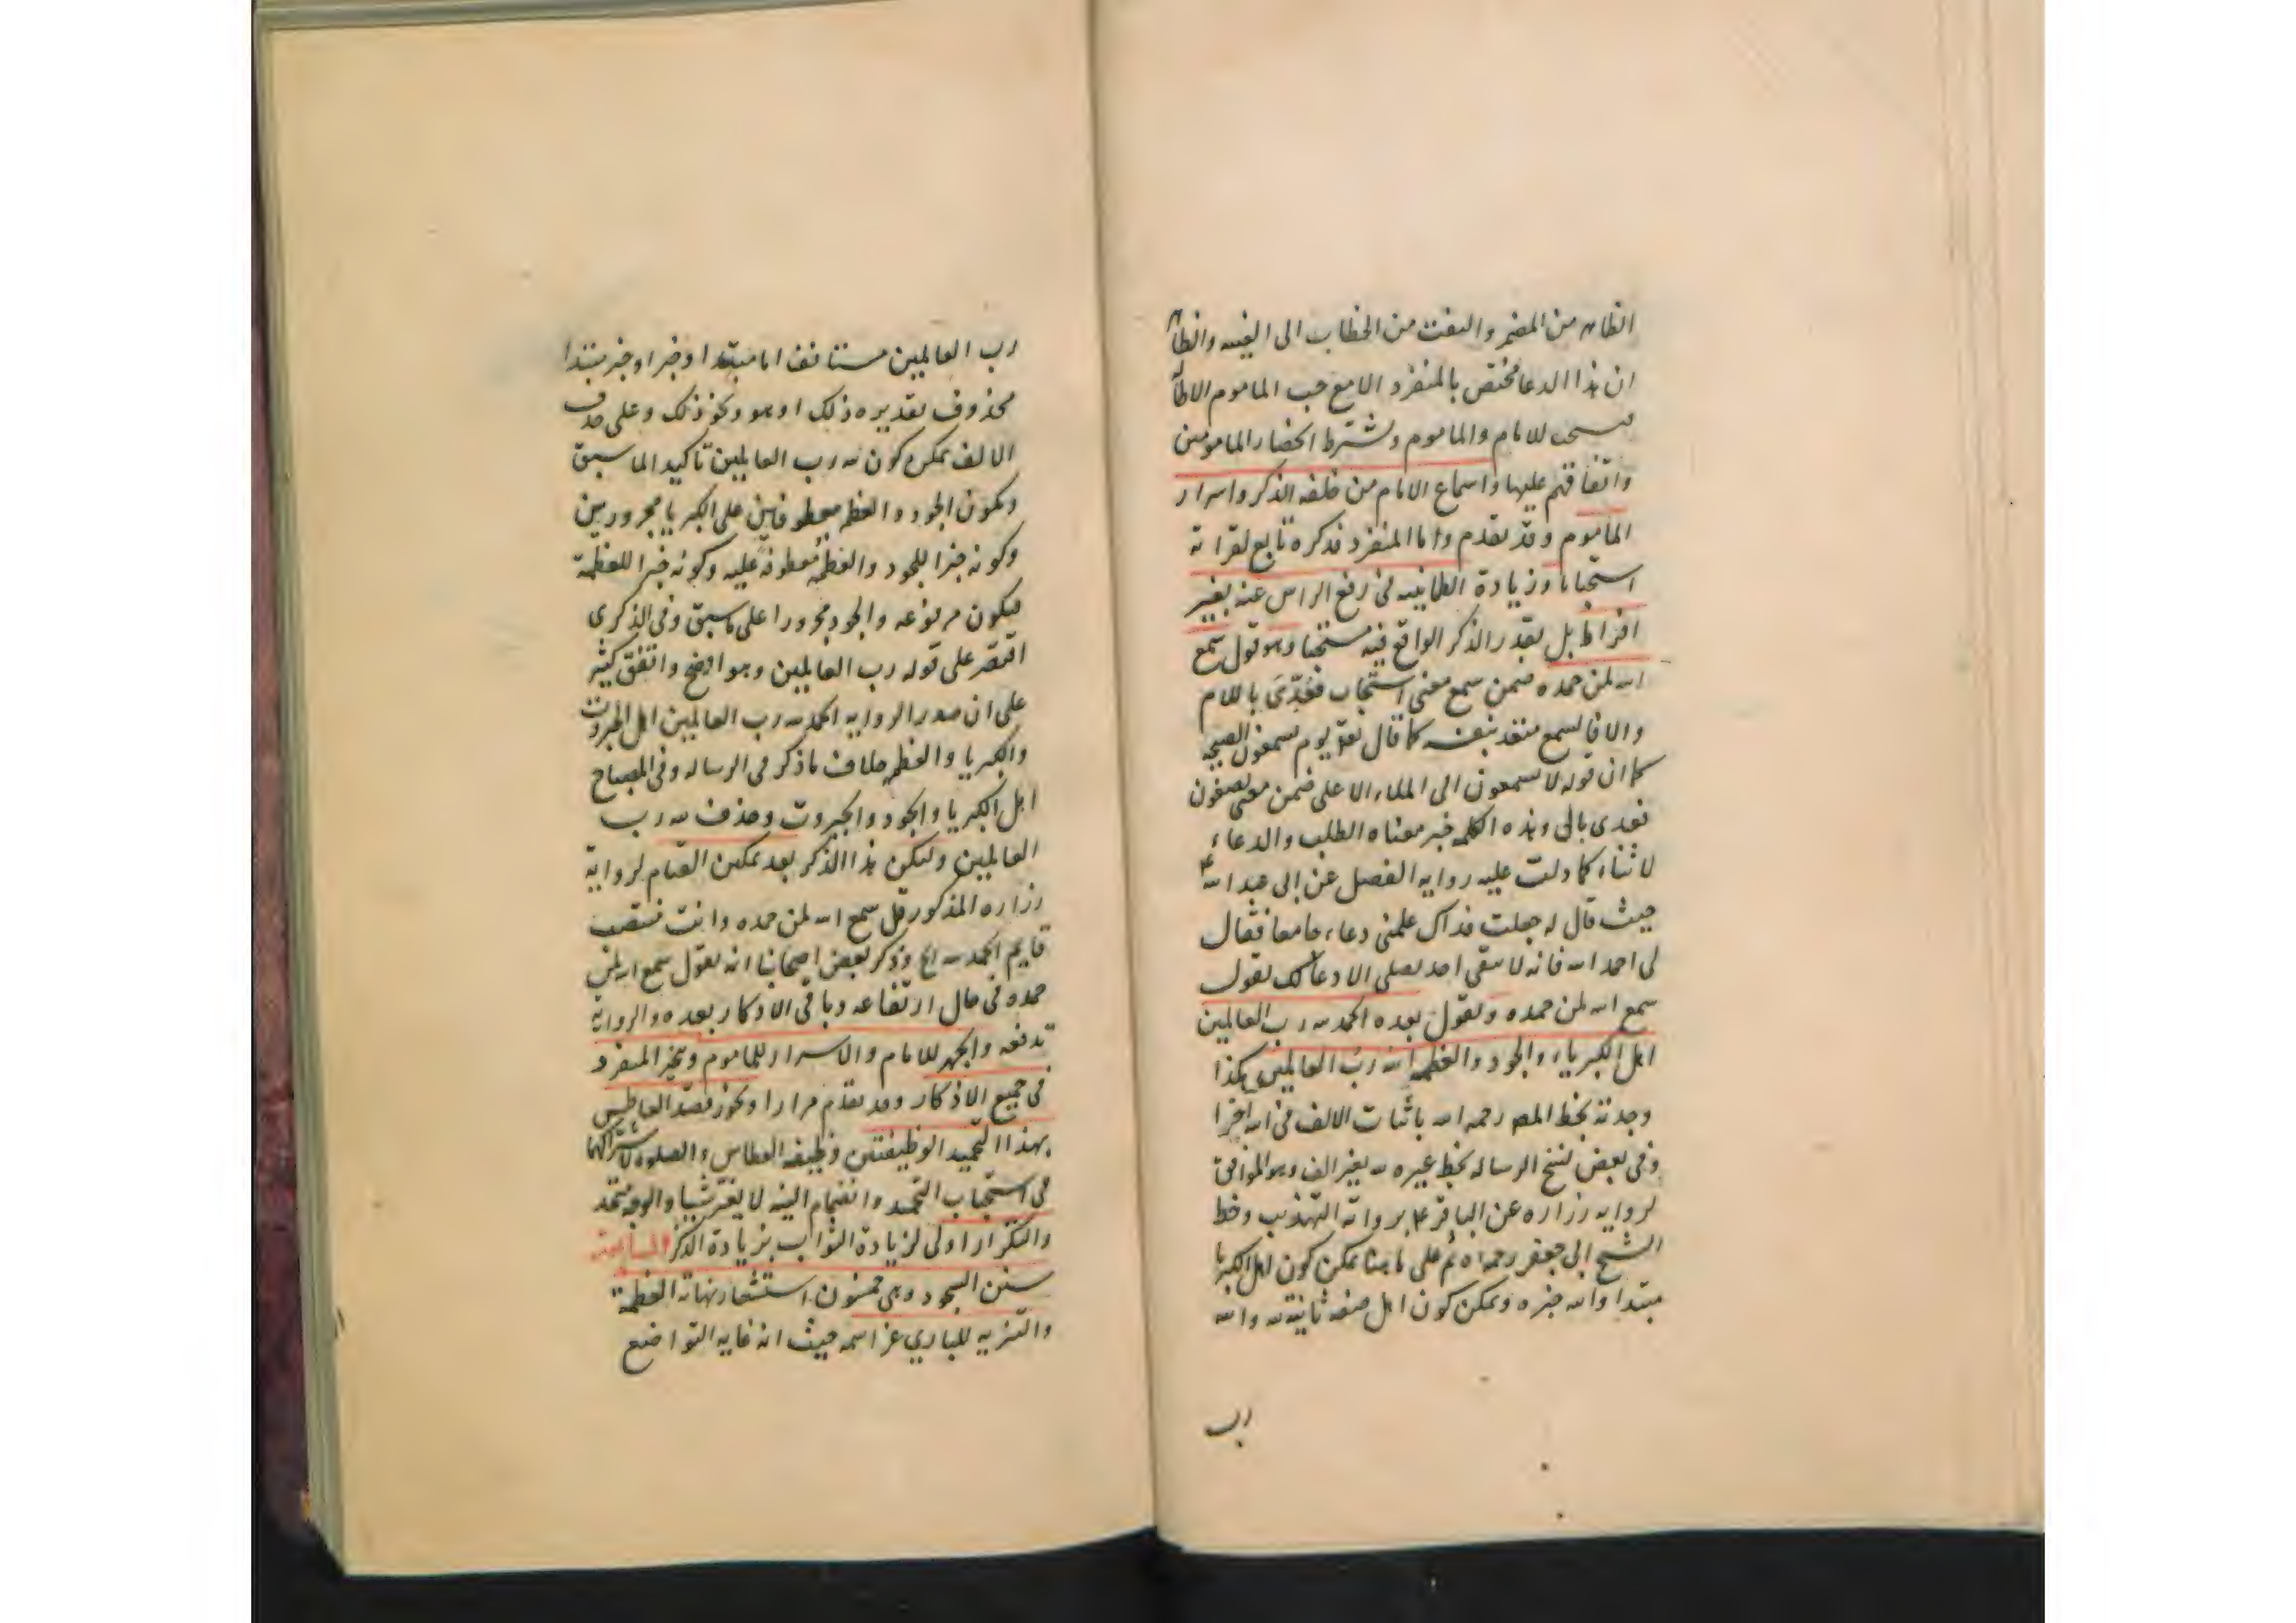 الظاهر من المضمر والتفت من الخطاب الى الغيبه والظاهر
ان هذا الدعا مختص بالمنفرد الا مع حب الماموم الاطالة
فيستحب للامام والماموم ويشترط انحصار المامومين
واتفاقهم عليها واسماع الامام من خلفه الذكر واسرار
الماموم وقد تقدم واما المنفرد فذكره تابع لقراته
استحبابا وزيادة الطمانينه فى رفع الراس عنه بغير
افراط بل بقدر الذكر الواقع فيه مستحبا وهو قول سمع
الله لمن حمده ضمن سمع معنى استجاب فعُدّىَ باللام
والا فالسمع متعد بنفسه كما قال تعالى يوم يسمعون الصيحه
كما ان قوله لا يسمعون الى الملاء الاعلى ضمن معنى يصغون
فعدى بالى وهذه الكلمه خبر معناه الطلب والدعاء
لا ثناء كما دلت عليه روايه الفضل عن ابى عبد الله ع
حيث قال له جعلت فداك علمنى دعاء جامعا فقال
لى احمد الله فانه لا يبقى احد يصلى الا دعا لك يقول
سمع الله لمن حمده ويقول بعده الحمد لله رب العالمين
اهل الكبرياء والجود والعظمه الله رب العالمين هكذا
وجدته بخط المصـ رحمه الله باثبات الالف فى الله اخرا
وفى بعض نسخ الرساله بخط غيره لله بغير الف وهو الموافق
لروايه زراره عن الباقر ع بروايه التهذيب وخط
الشيخ ابى جعفر رحمه الله ثم على ما هنا يمكن كون اهل الكبريا
مبتدا والله خبره ويمكن كون اهل صفه ثانية لله والله
رب
رب العالمين مستانف اما مبتدا وخبر او خبر مبتدا
محذوف تقديره ذلك او هو ونحو ذلك وعلى حذف
الالف يمكن كون لله رب العالمين تاكيدا لما سبق
ويكون الجود والعظمه معطوفين على الكبريا مجرورين
وكونه خبرا للجود والعظمه معطوفة عليه وكونه خبرا للعظمة
فيكون مرفوعه والجود مجرورا على ما سبق وفى الذكرى
اقتصر على قوله رب العالمين وهو اوضح واتفق كثير
على ان صدر الروايه الحمد لله رب العالمين اهل الجبروت
والكبريا والعظمه خلاف ما ذكر فى الرساله وفى المصباح
اهل الكبريا والجود والجبروت وحذف لله رب
العالمين وليكن هذا الذكر بعد تمكين القيام لرواية
زراره المذكور قل سمع الله لمن حمده وانت منتصب
قايم الحمد لله الخ وذكر بعض اصحابنا انه يقول سمع الله لمن
حمده فى حال ارتفاعه وباقى الاذكار بعده والرواية
تدفعه والجهر للامام والاسرار للماموم وتخير المنفرد
فى جميع الاذكار وقد تقدم مرارا ويجوز قصد العاطس
بهذا التحميد الوظيفتين وظيفه العطاس والصلوه لاشتراكهما
فى استحباب التحميد وانضمام النيه لا يغير شيئا والوجه متحد
والتكرار اولى لزيادة الثواب بزيادة الذكر السابعة
سنن السجود وهى خمسون استشعار نهاية العظمة
والتنزيه للبارى عز اسمه حيث انه غايه التواضع